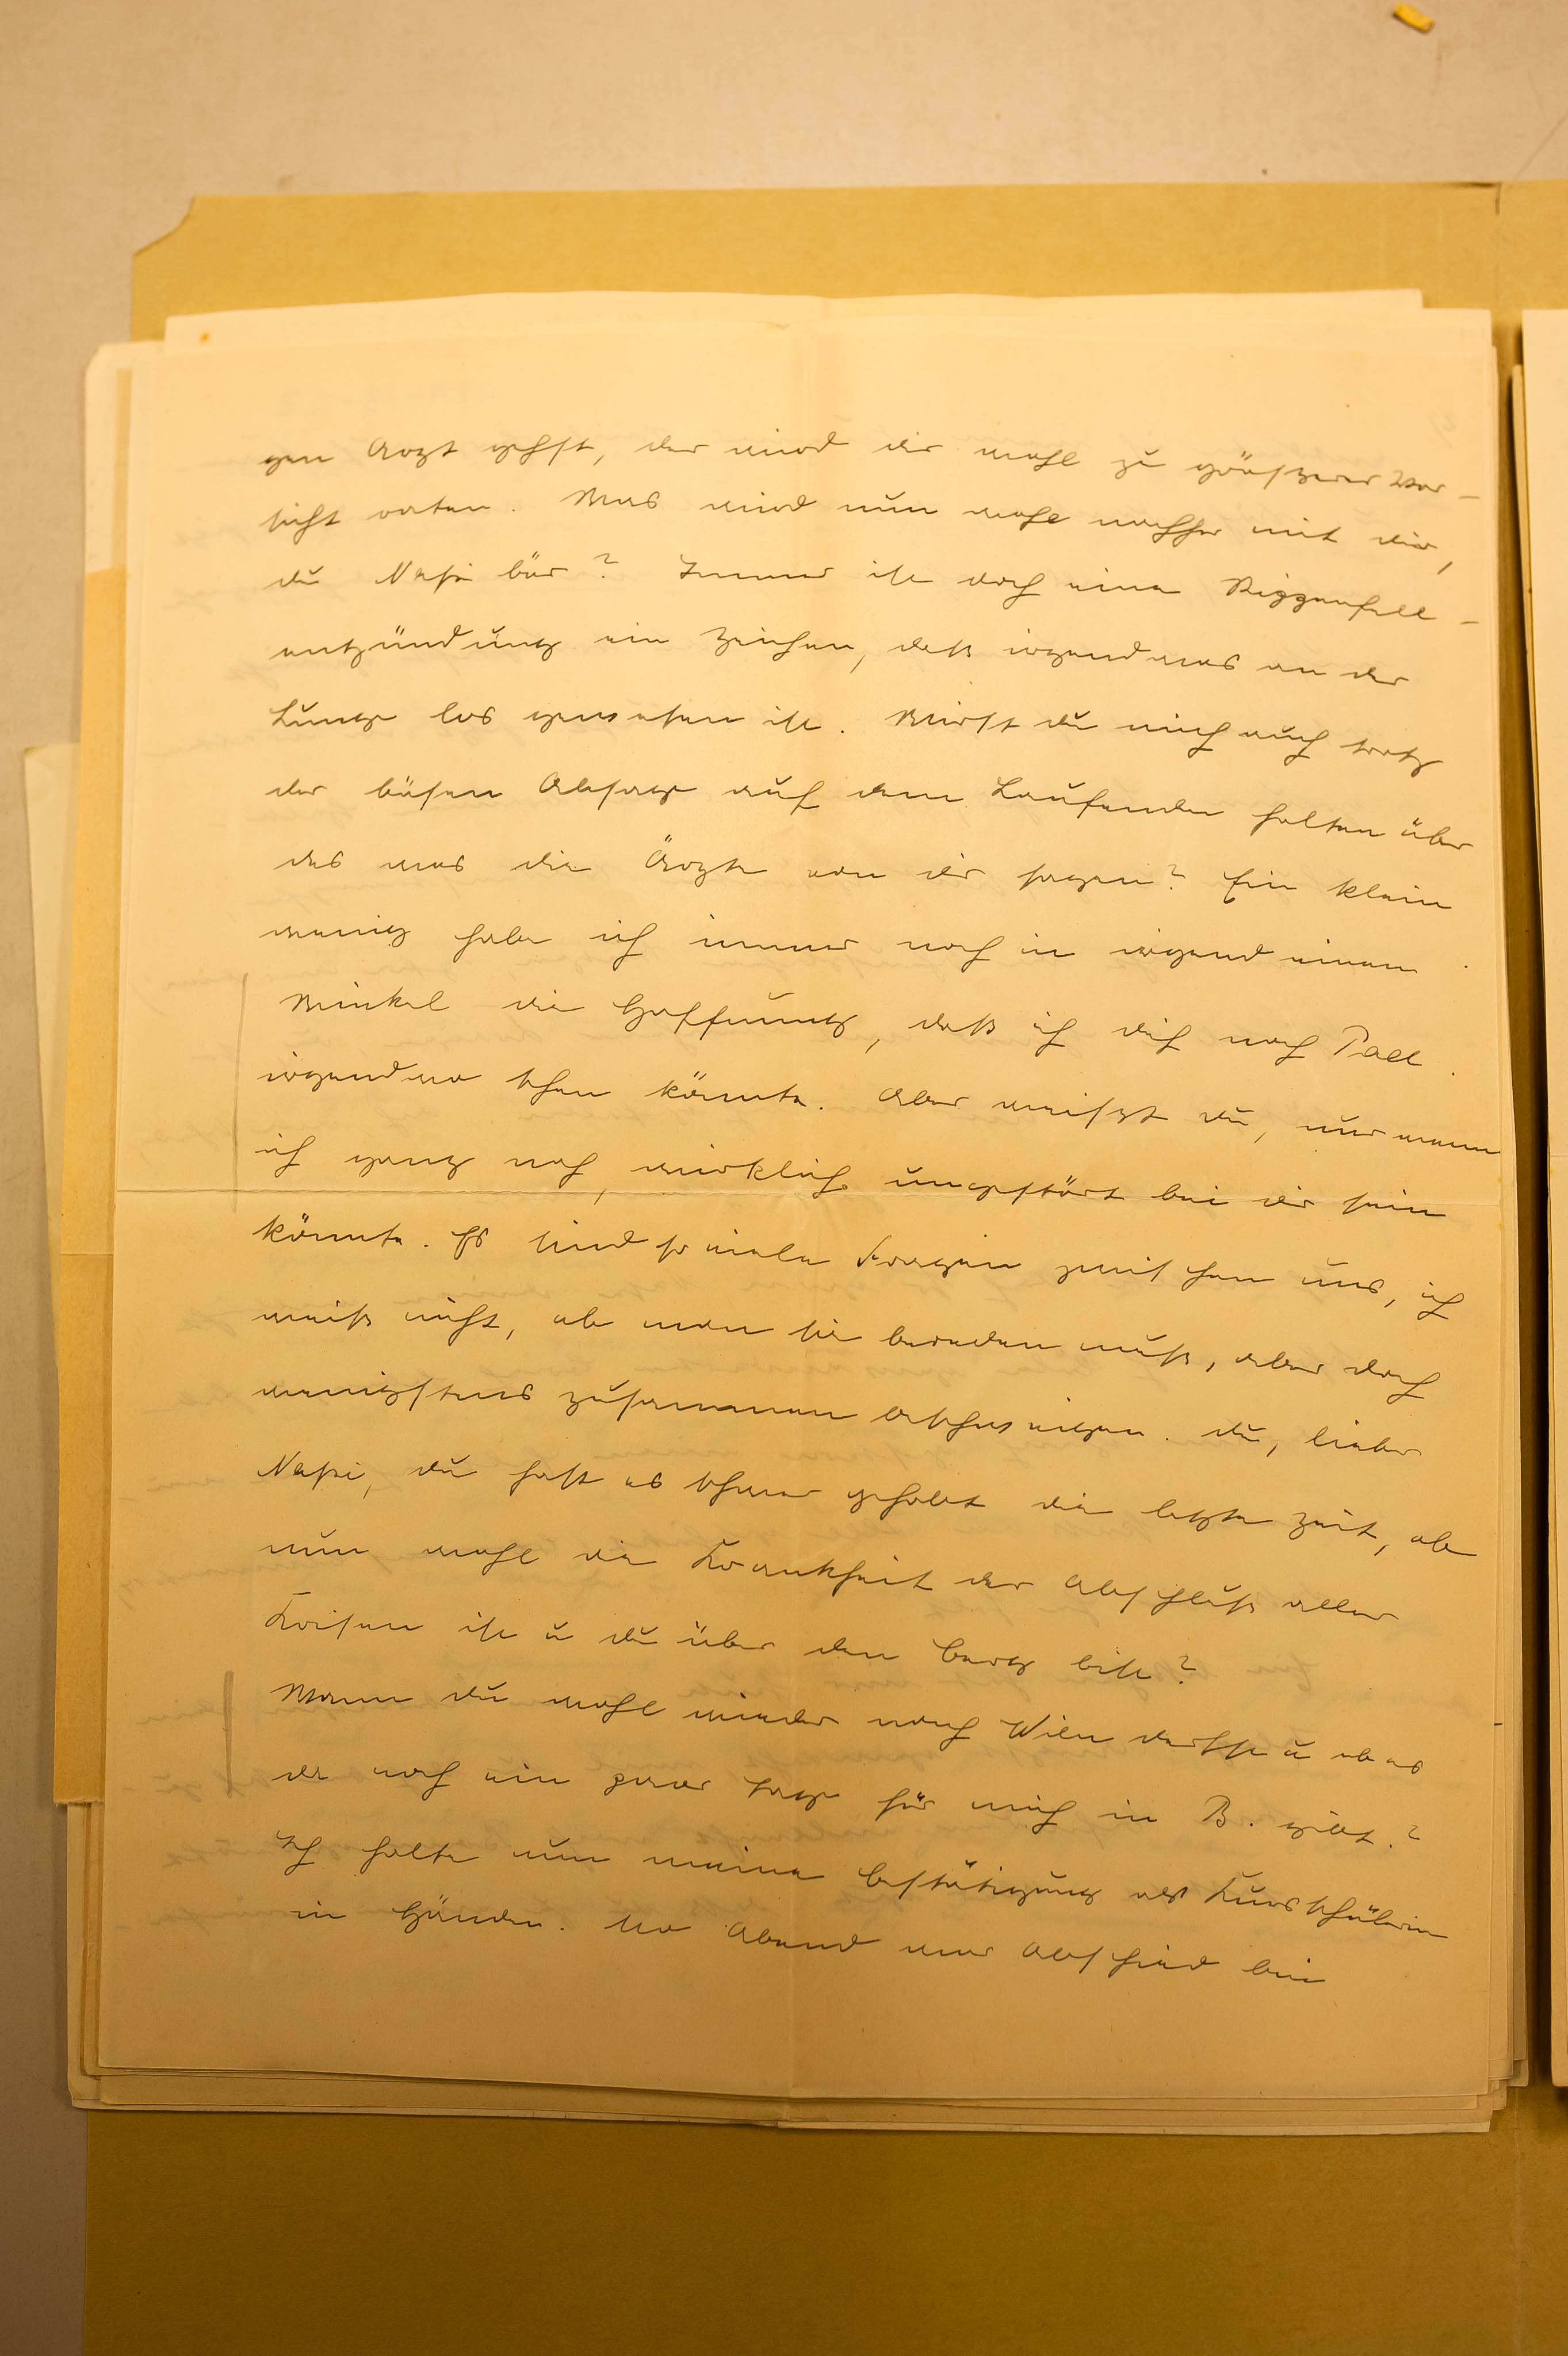 gen Arzt gehst, der wird dir wohl zu größerer Vor-
sicht raten. Was wird nun wohl nachher mit dir,
du Nasi bär? Immer ist doch eine Rippenfell-
entzündung ein Zeichen, daß irgendwas an der
Lunge los gewesen ist. Wirst du mich auch trotz
der bösen Absage auf dem Laufenden halten über
das was die Ärzte von dir sagen? Ein klein
wenig habe ich immer noch in irgend einem
Winkel die Hoffnung, daß ich dich noch
irgendwo sehen könnte. Aber weißt du, nur wenn
ich ganz nah, wirklich ungestört bei dir sein
könnte. Es sind so viele Fragen zwischen uns, ich
weiß nicht, ob man sie bereden muß, aber doch
wenigstens zusammen beschweigen. Du, lieber
Nasi, du hast es schwer gehabt die letzte Zeit, ob
nun wohl die Krankheit der Abschluß aller
Krisen ist u du über den Berg bist?
Wann du wohl wieder nach Wien darfst u ob es
da noch ein paar Tage für mich in B. gibt?
Ich halte nun meine Bestätigung als Kursschülerin
in Händen. Abend war Abschied bei